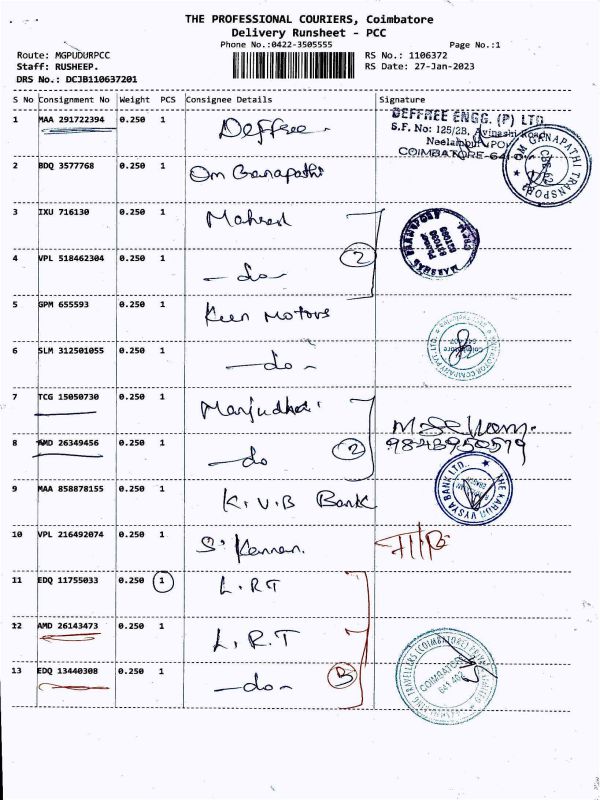 THE PROFESSIONAL COURIERS, Coimbatore
Delivery Runsheet - PCC
Phone No.:0422-3505555 Page No.:1
Route: MGPUDURPCC RS No.: 1106372
Staff: RUSHEEP. RS Date: 27-Jan-2023
DRS No.: DCJB110637201
S No Consignment No Weight PCS Consignee Details Signature
1 MAA 291722394 0.250 1 Deffree.
DEFFREE ENGG. (P) LTD
S.F. No: 125/2B, Avinashi Road
Neelambur (PO)
COIMBATORE-641
2 BDQ 3577768 0.250 1 Om Ganapathi
OM GANAPATHI TRANSPORT
3 IXU 716130 0.250 1
4 VPL 518462304 0.250 1 -do- 2
5 GPM 655593 0.250 1 Keen Motors
6 SLM 312501055 0.250 1 -do-
7 TCG 15050730 0.250 1
8 AMD 26349456 0.250 1 -do 2
9 MAA 858878155 0.250 1 K.V.B Bank
THE KARUR VYSYA BANK LTD.
10 VPL 216492074 0.250 1 S. Kannan.
11 EDQ 11755033 0.250 1 L.R.T
12 AMD 26143473 0.250 1 L.R.T
13 EDQ 13440308 0.250 1 -do-
COIMBATORE